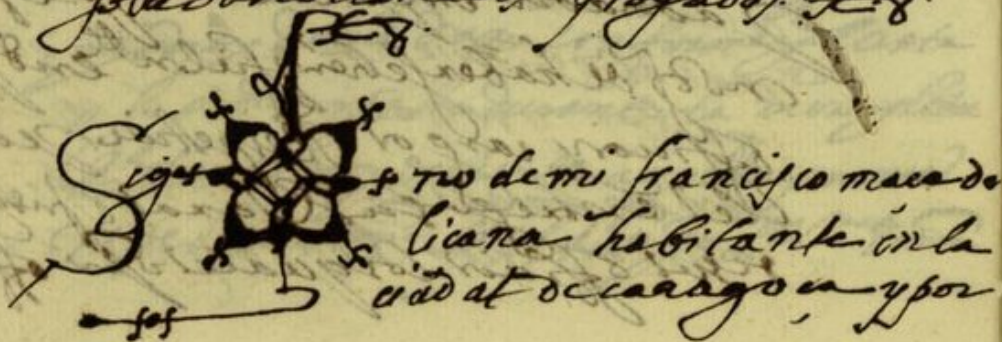 Sig no de mi francisco maça de
licana habitante en la
ciudat de caragoça y por